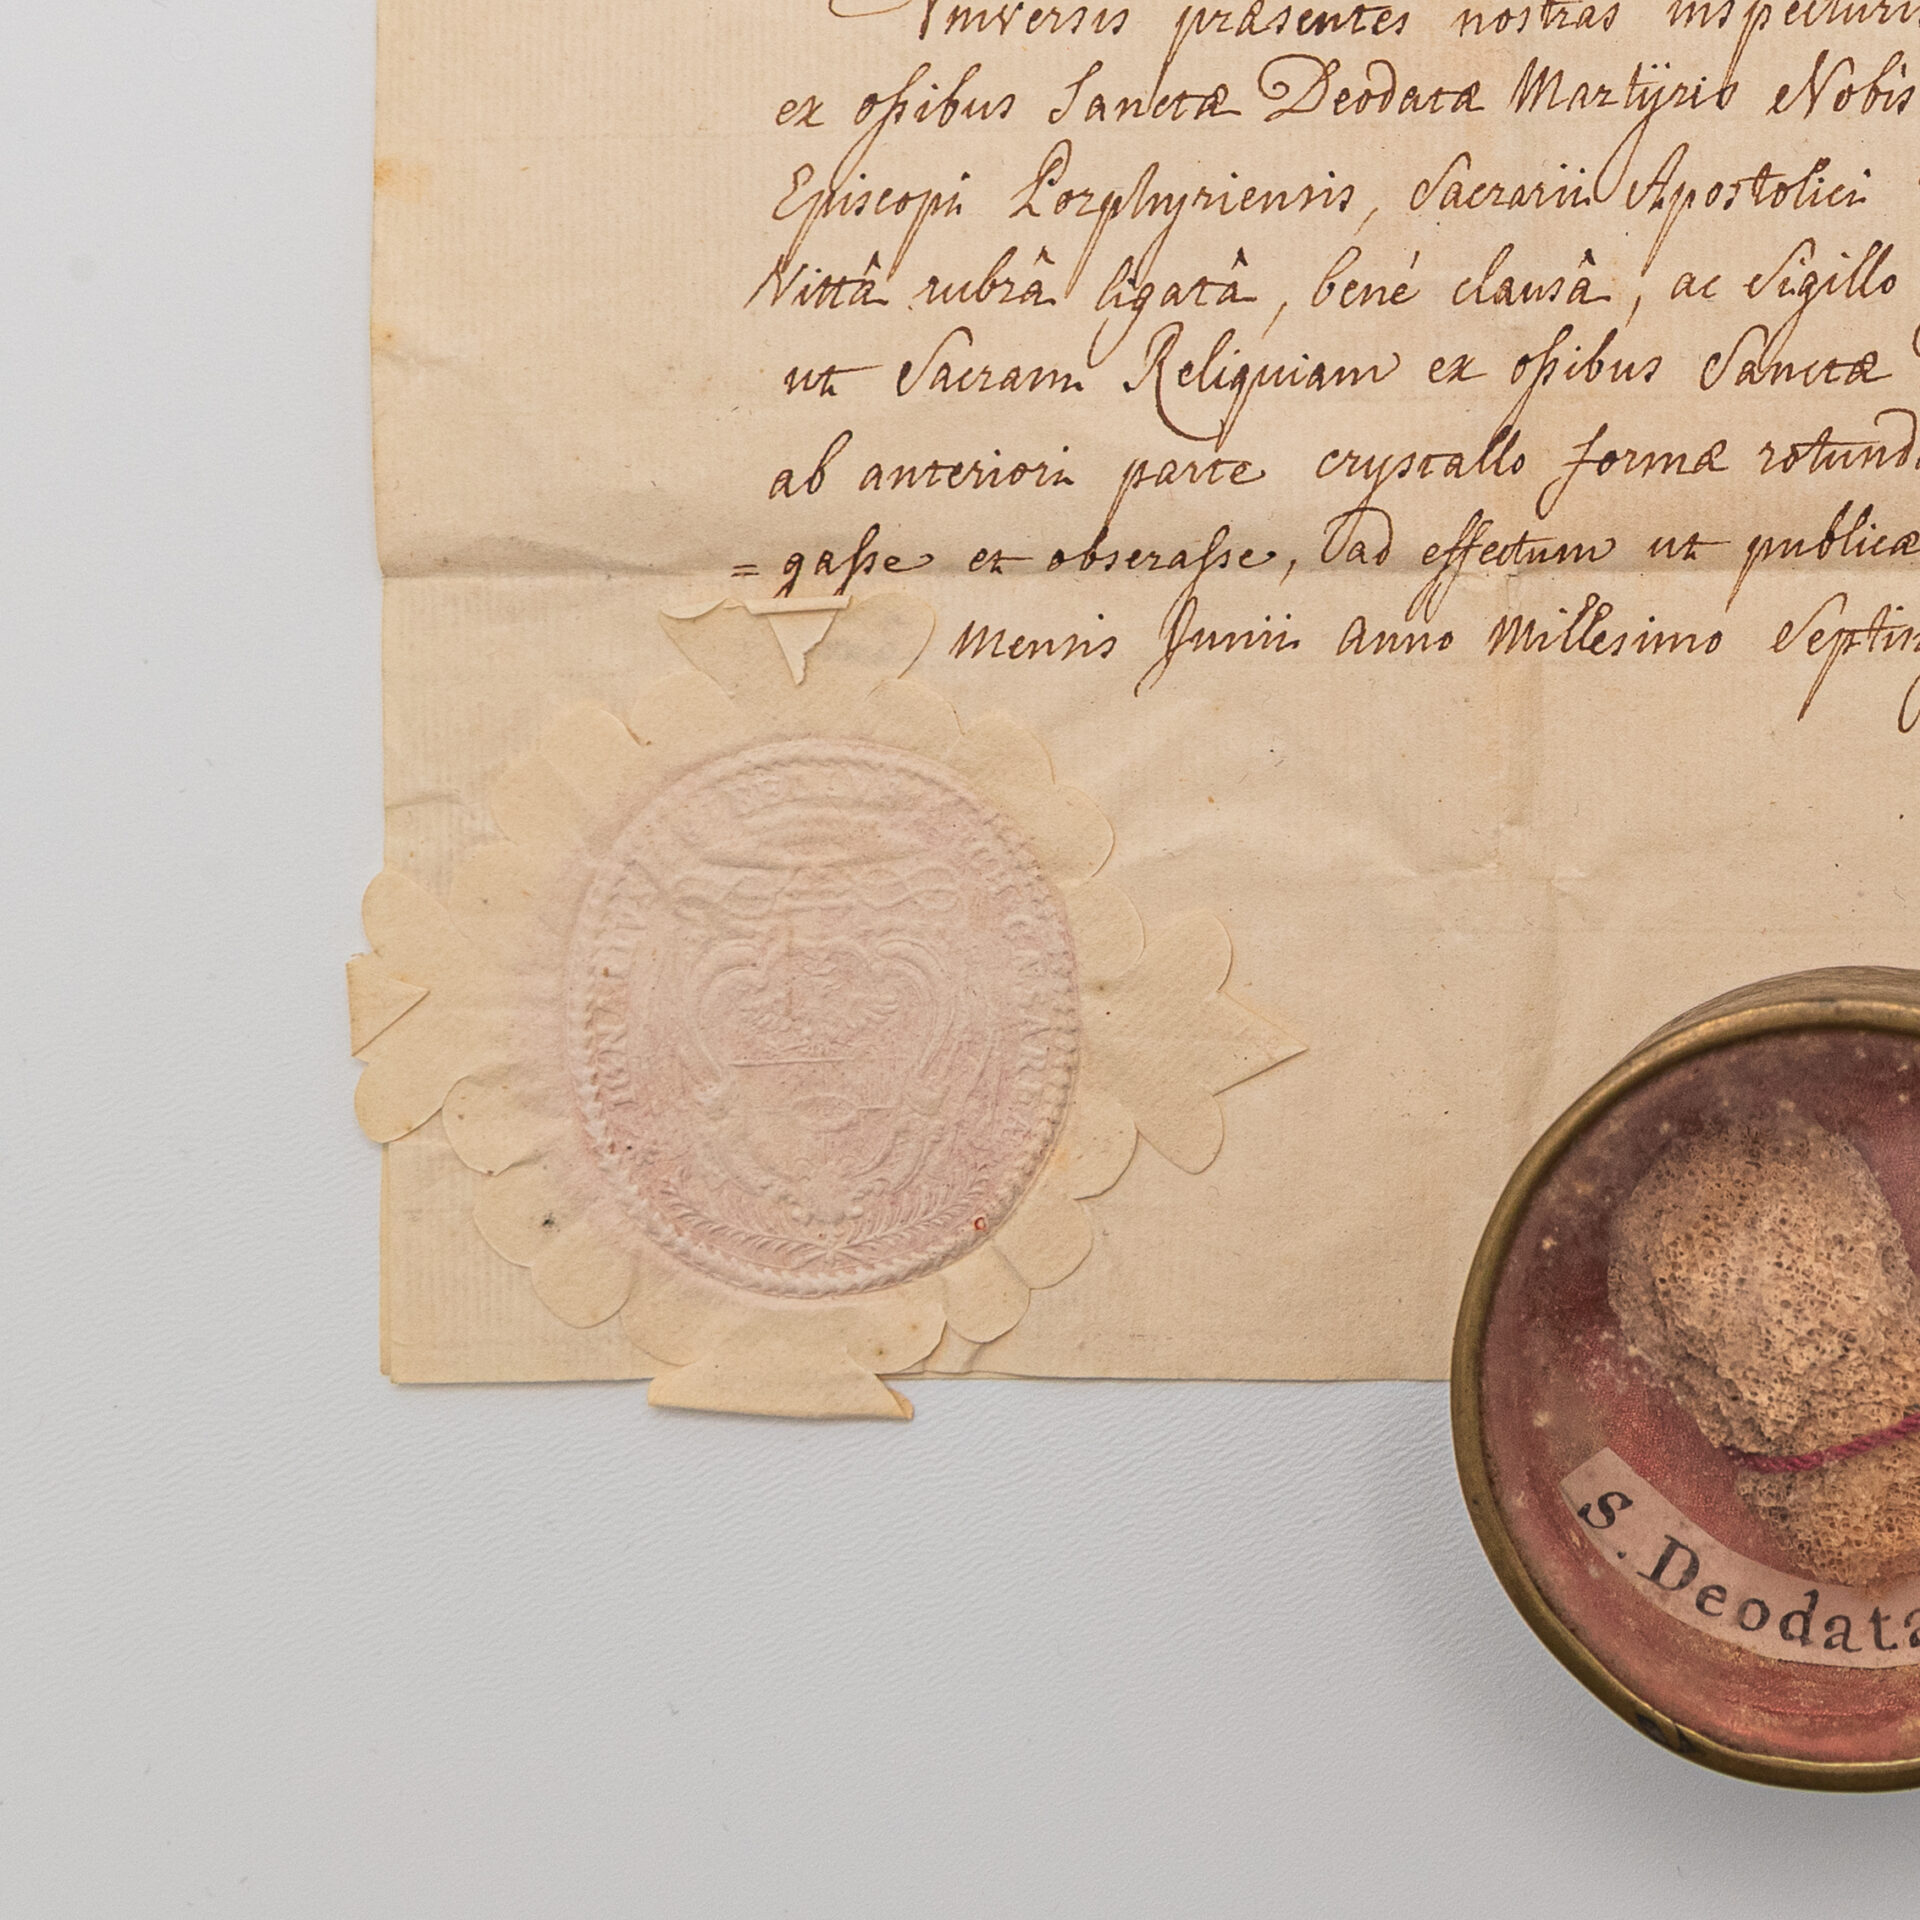 Universis præsentes nostras inspecturis
ex ossibus Sanctæ Deodatæ Martÿris Nobis
Episcopi Porphyriensis, Sacrarii Apostolici
Vittâ rubrâ ligatâ, bené clausâ, ac Sigillo
ut Sacram Reliquiam ex ossibus Sanctæ
ab anteriori parte crystallo formæ rotund
= gasse et obserasse, ad effectum ut publicæ
Mensis Junii Anno Millesimo Septin
S. Deodata